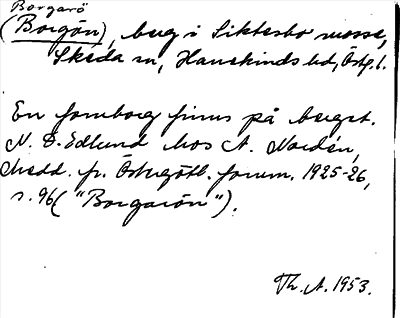 Borgarö
(Borgön), berg i Liktesbo mosse,
Skeda sn, Hanekinds hd, Östg. l.
En fornborg finns på berget.
N. D. Edlund hos A. Nordén,
Medd. fr. Östergötl. fornm. 1925-26,
s. 96 ("Borgarön").
Th. A. 1953.